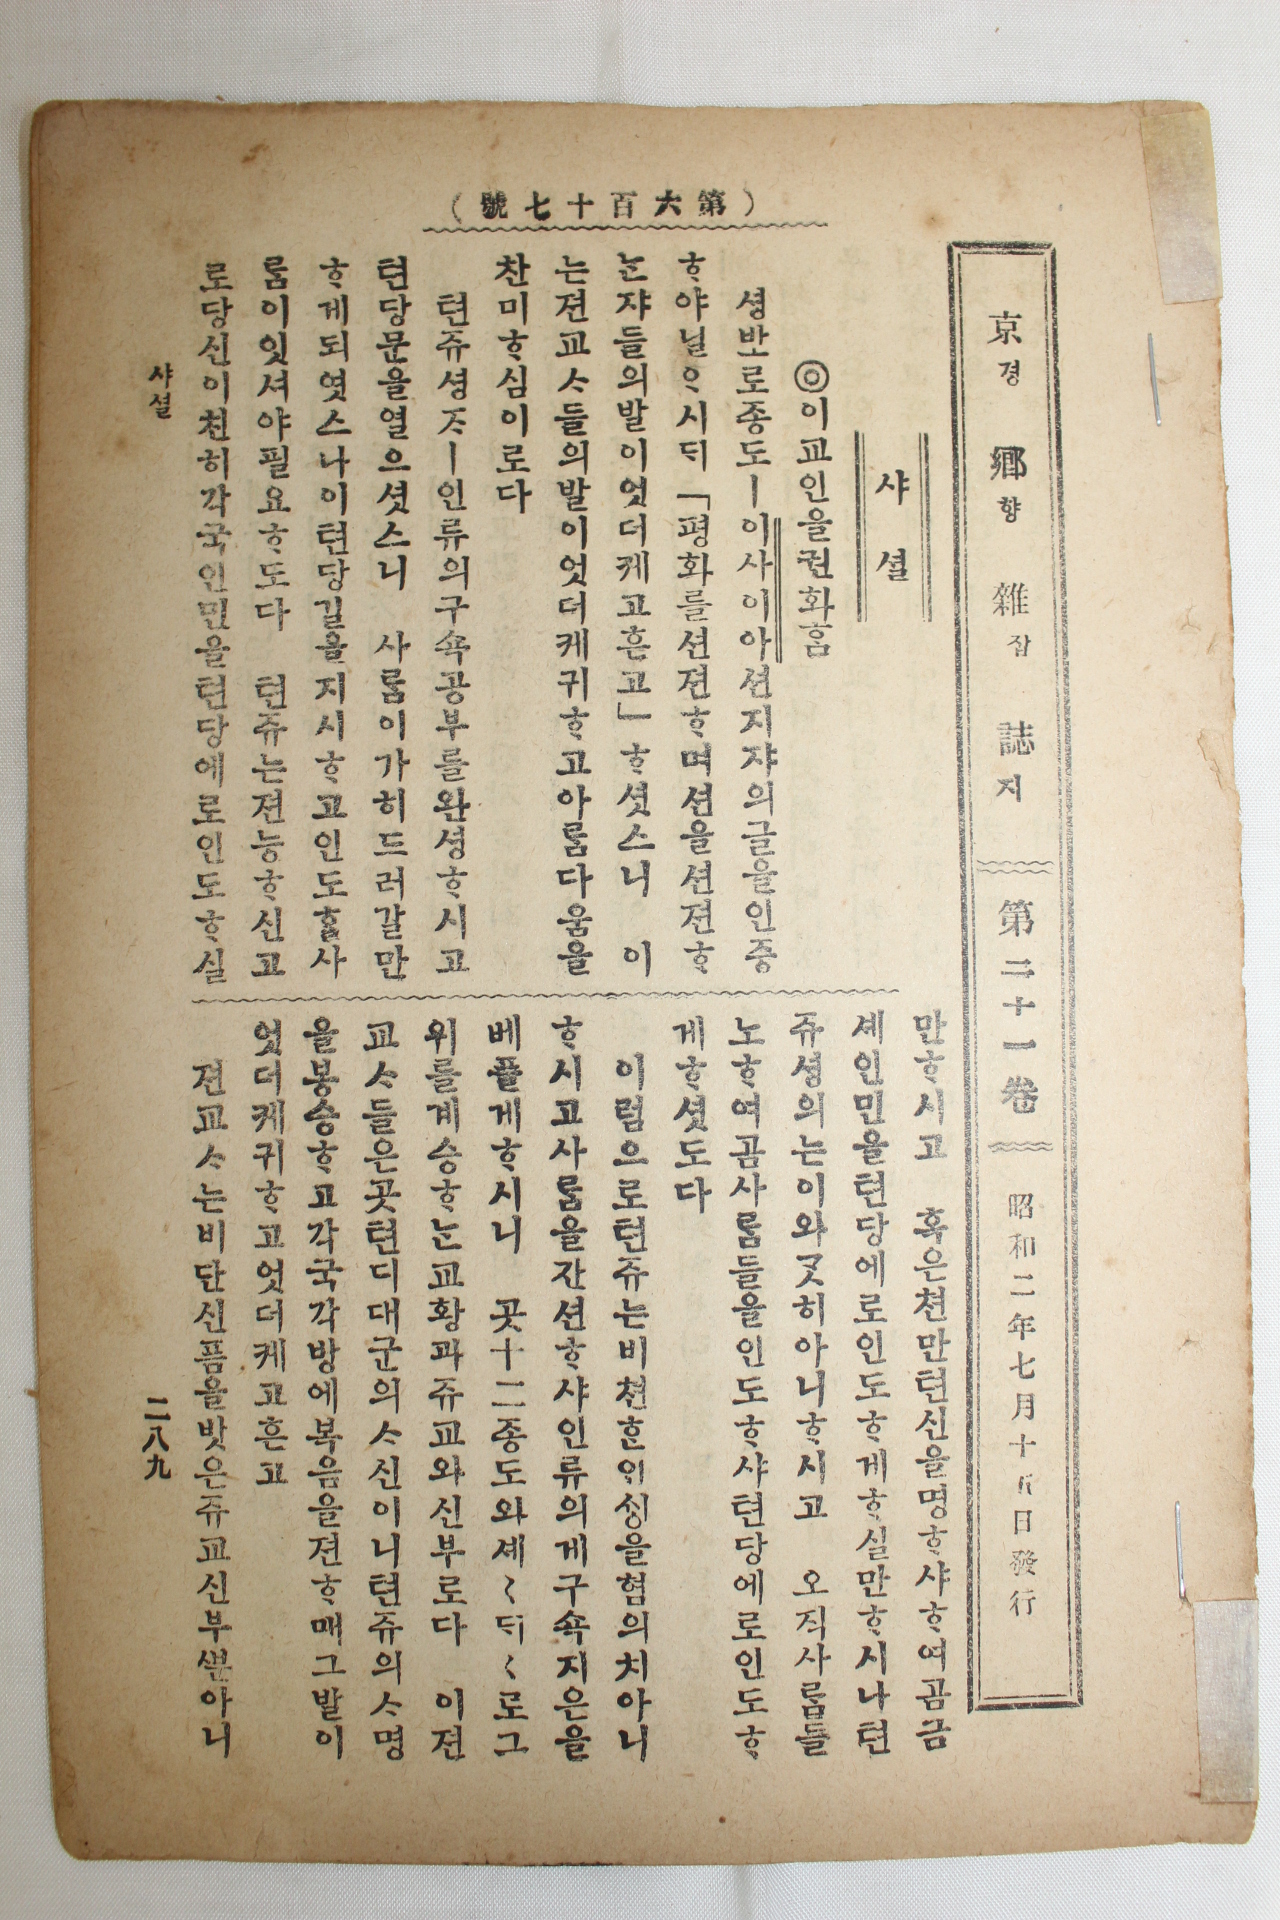 (第六百十七號)
京경 鄕향 雜잡 誌지 第二十一卷 昭和二年七月十五日發行
샤셜
◎이교인을권화홈
셩바오로종도ㅣ이사이아션지쟈의글을인증
ᄒᆞ야닐ᄋᆞ시ᄃᆡ「평화를션젼ᄒᆞ며션을션젼ᄒᆞ
ᄂᆞᆫ쟈들의발이엇더케고흔고」ᄒᆞ셧스니 이
ᄂᆞᆫ젼교ᄉᆞ들의발이엇더케귀ᄒᆞ고아ᄅᆞᆷ다움을
찬미ᄒᆞ심이로다
텬쥬셩ᄌᆞㅣ인류의구쇽공부를완셩ᄒᆞ시고
텬당문을열으셧스니 사ᄅᆞᆷ이가히드러갈만
ᄒᆞ게되엿스나이텬당길을지시ᄒᆞ고인도ᄒᆞᆯ사
ᄅᆞᆷ이잇셔야필요ᄒᆞ도다 텬쥬는젼능ᄒᆞ신고
로당신이친히각국인민을텬당에로인도ᄒᆞ실
만ᄒᆞ시고 혹은쳔만텬신을명ᄒᆞ샤ᄒᆞ여곰금
셰인민을텬당에로인도ᄒᆞ게ᄒᆞ실만ᄒᆞ시나텬
쥬셩의는이와ᄀᆞᆺ히아니ᄒᆞ시고 오직사ᄅᆞᆷ들
노ᄒᆞ여곰사ᄅᆞᆷ들을인도ᄒᆞ샤텬당에로인도ᄒᆞ
게ᄒᆞ셧도다
이럼으로텬쥬는비쳔ᄒᆞᆫ을혐의치아니
ᄒᆞ시고사ᄅᆞᆷ을잔션ᄒᆞ샤인류의게구쇽지은을
베플게ᄒᆞ시니 곳十二종도와셰〻ᄃᆡ〻로그
위를계승ᄒᆞᄂᆞᆫ교황과쥬교와신부로다 이젼
교ᄉᆞ들은곳텬디대군의ᄉᆞ신이니텬쥬의ᄉᆞ명
을봉승ᄒᆞ고각국각방에복음을젼ᄒᆞ매그발이
엇더케귀ᄒᆞ고엇더케고흔고
젼교ᄉᆞ는비단신픔을밧은쥬교신부ᄲᅮᆫ아니
샤셜
二八九